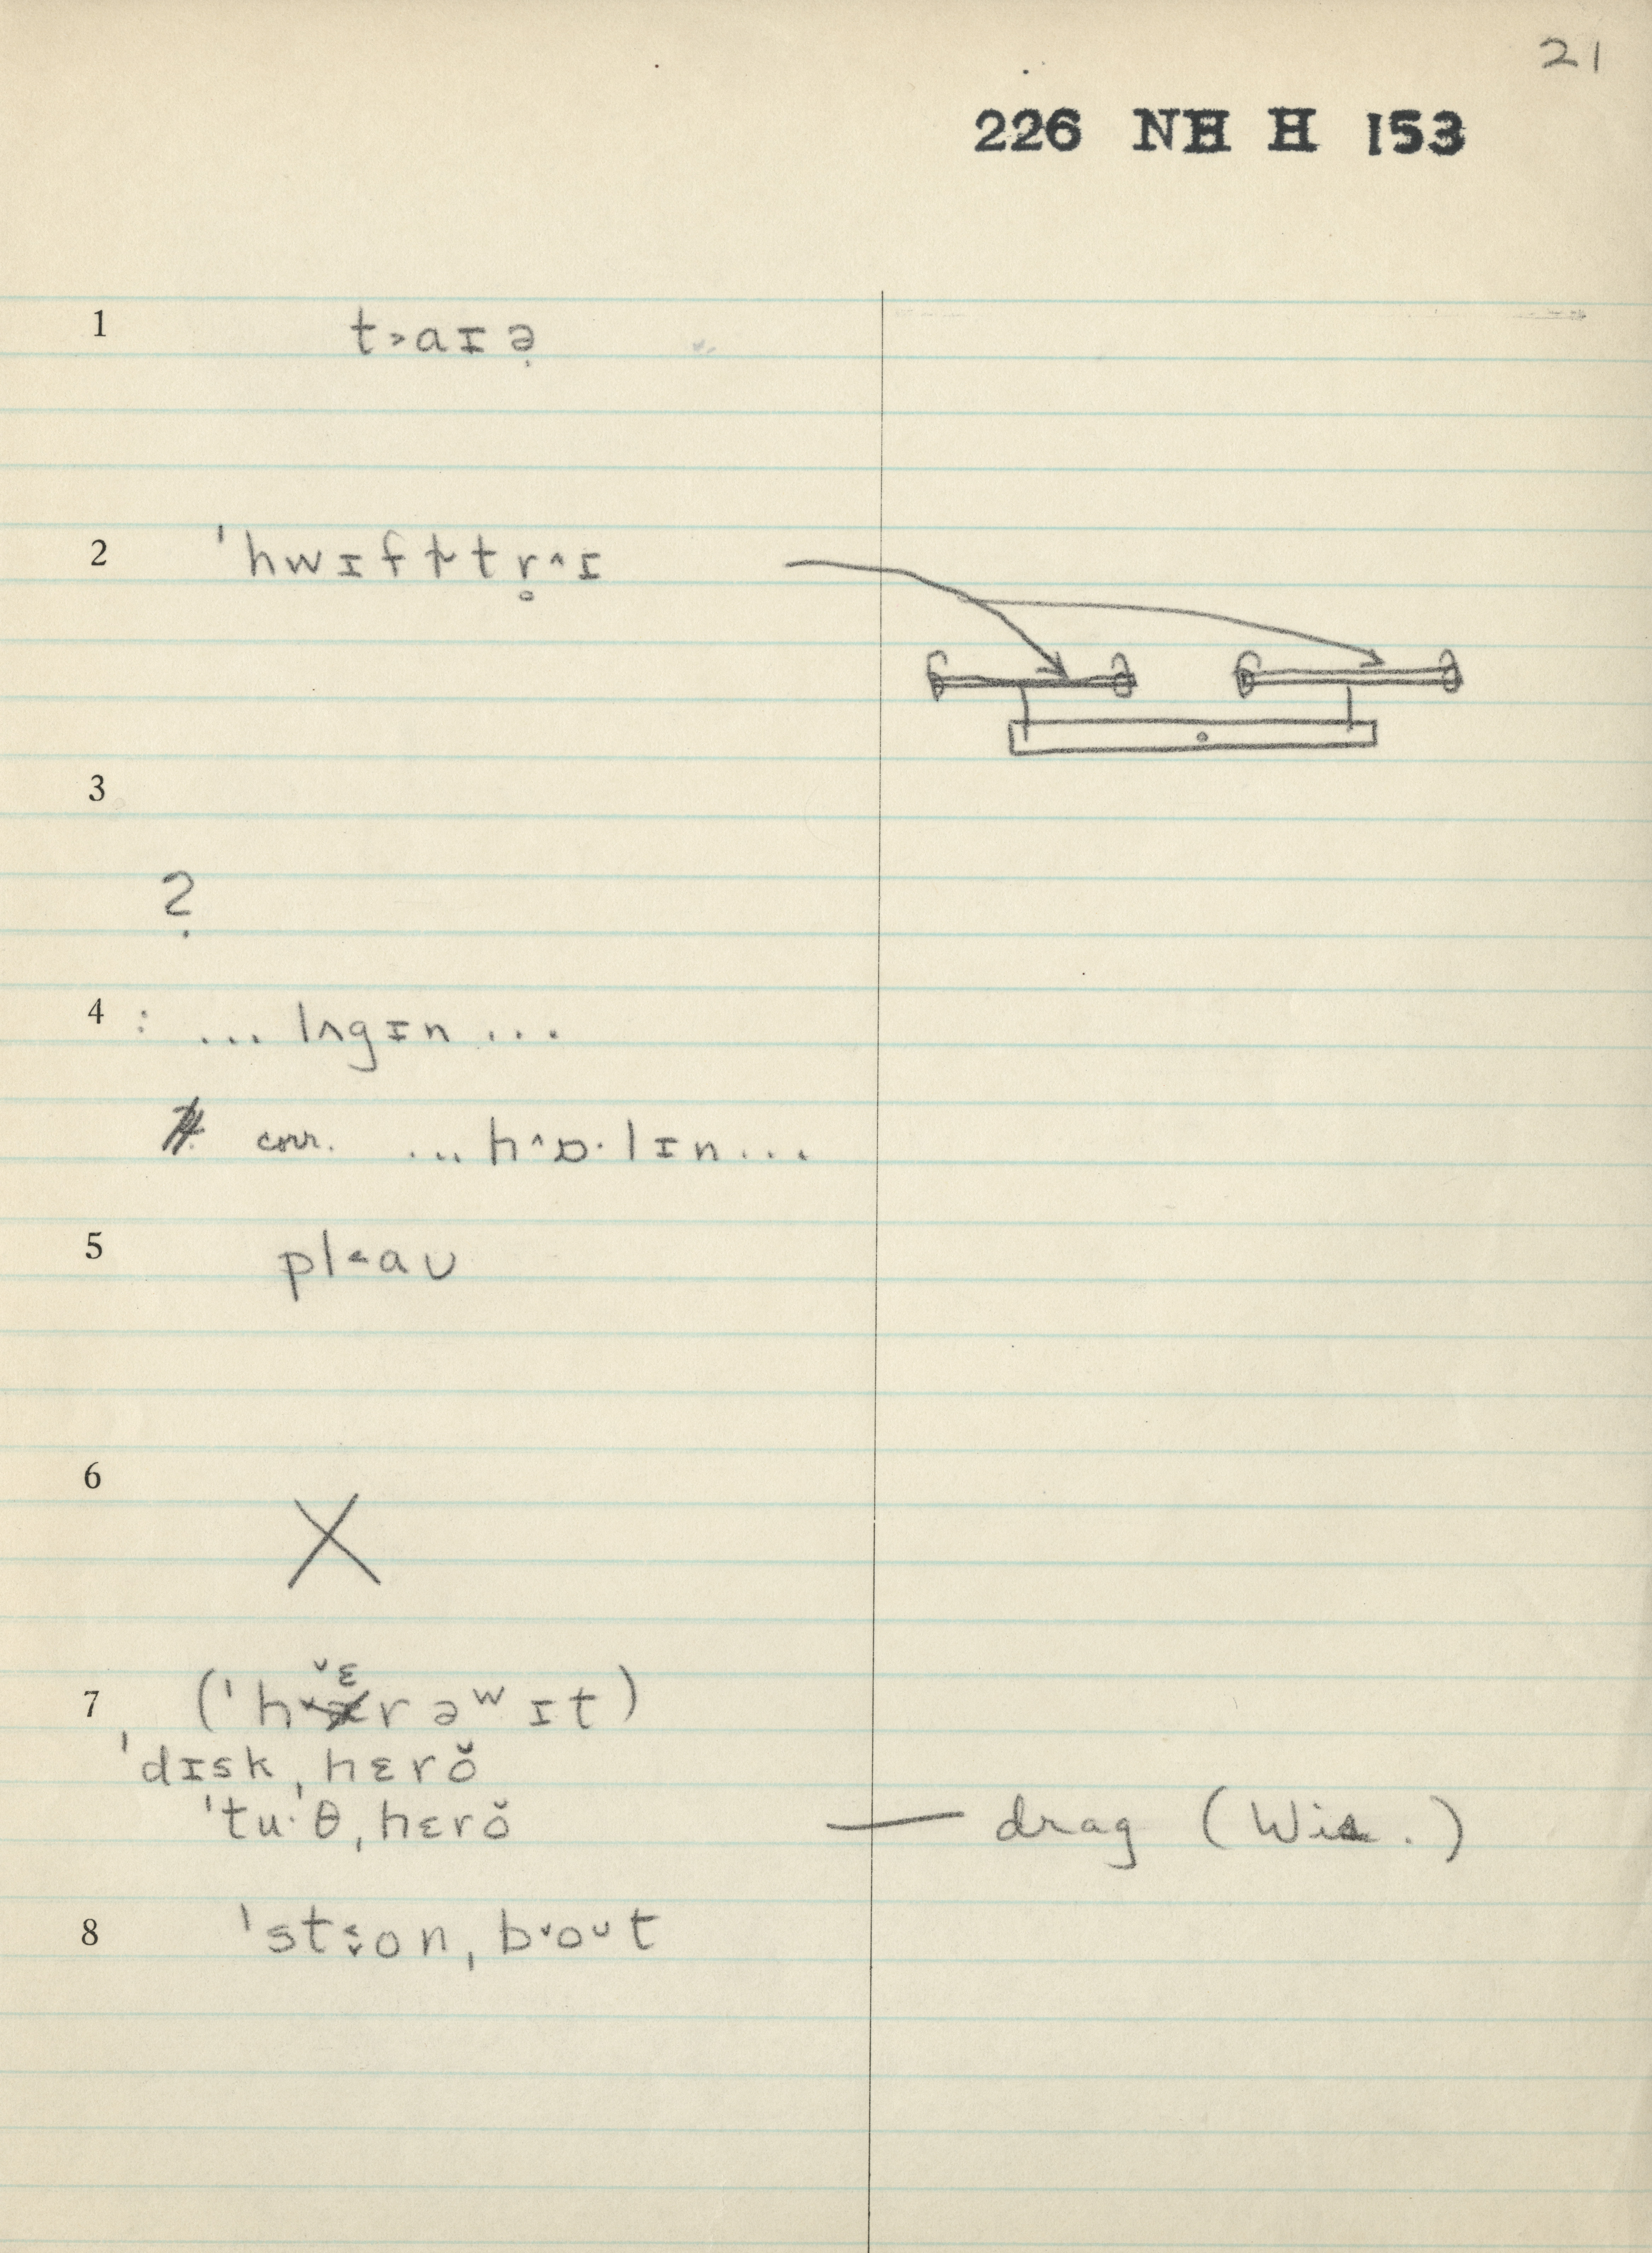 21
226 NH H 153
1 t˃aɪə̣
2 ˈhwɪfɫ̩tr̥^ɪ
3
?
4 : ... lʌgɪn ...
corr. ... h^ɒ·lɪn ...
5 pl˂aʊ
6 X
7 (ˈh˅ɛrəʷɪt)
ˈdɪskˌhɛrŏ
ˈtu·ˈθˌhɛrŏ — drag (Wis.)
8 ˈstonˌb˅oᴜt